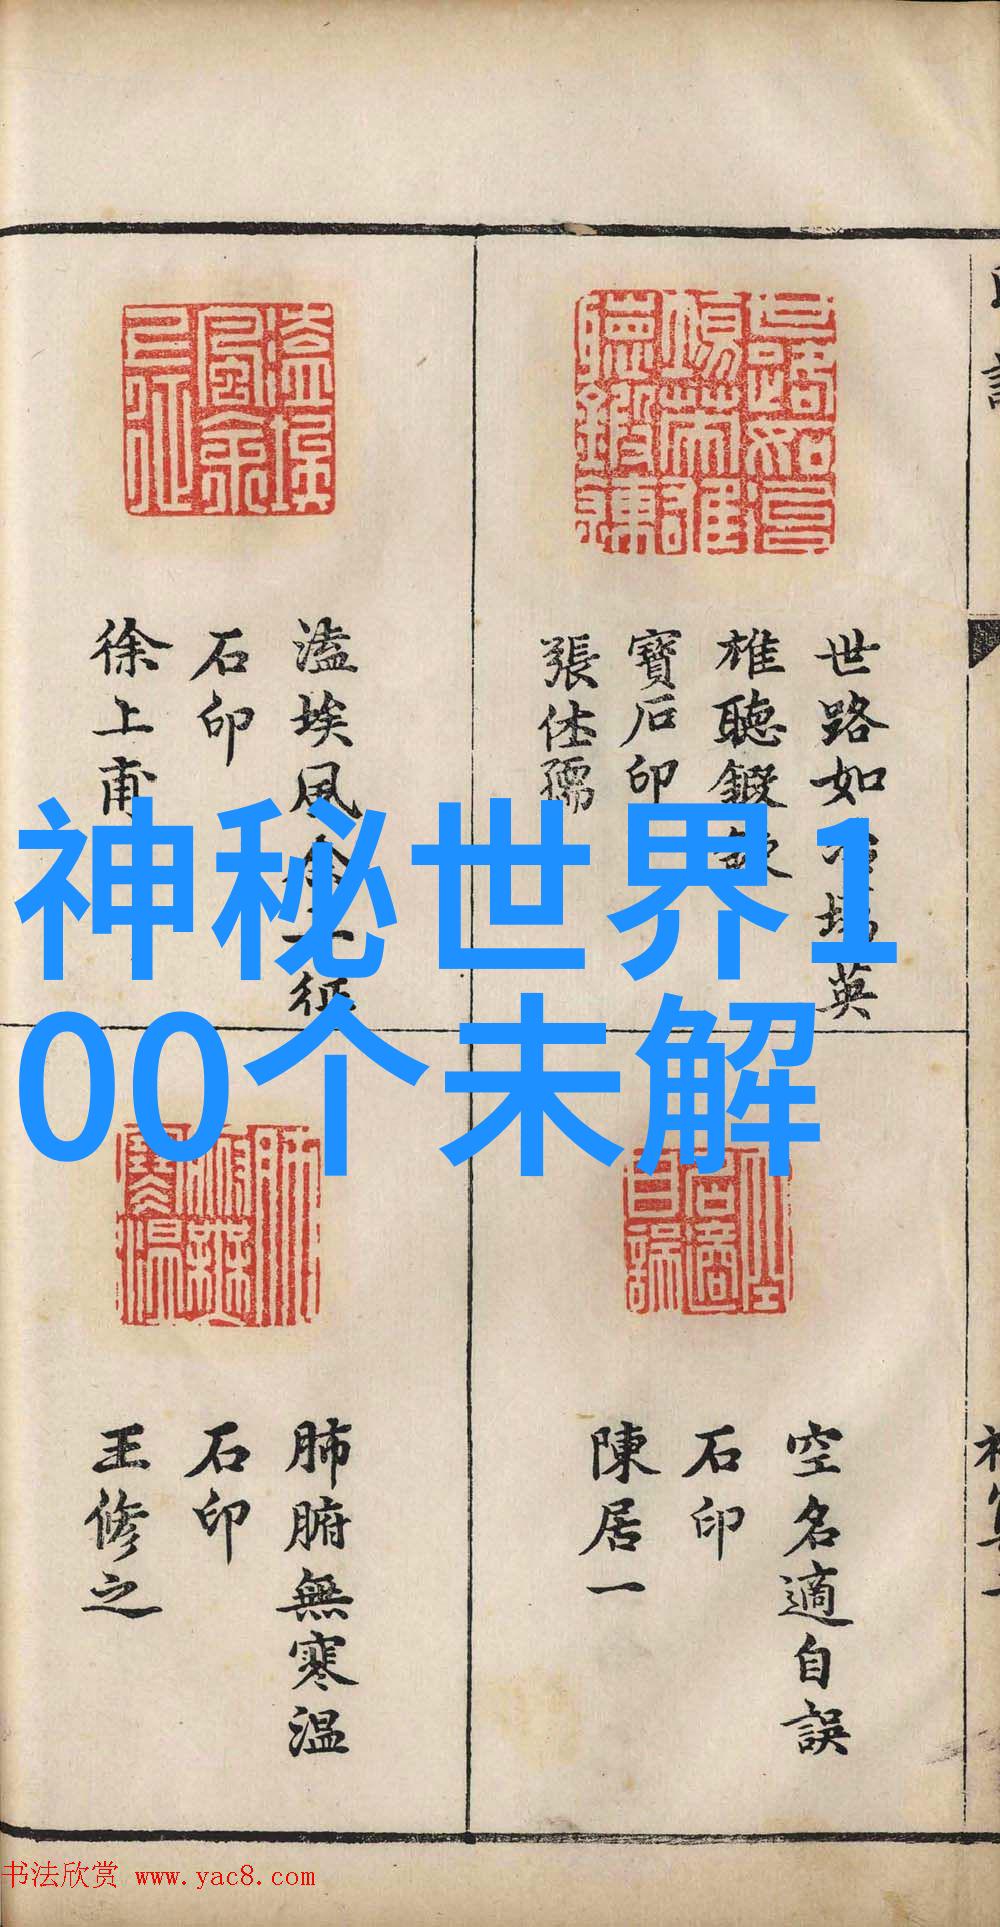 神秘世界1
00个未解
世路如冶場英
雄聽鍛鍊
寶石印
張仕孺
溘埃風余上征
石印
徐上甫
空名適自誤
石印
陳居一
肺腑無寒溫
石印
王修之
书法欣赏 www.yac8.com